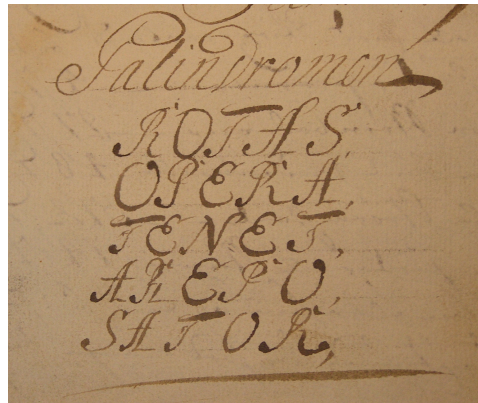 Palindromon
ROTAS,
OPERA,
TENET,
AREPO,
SATOR,